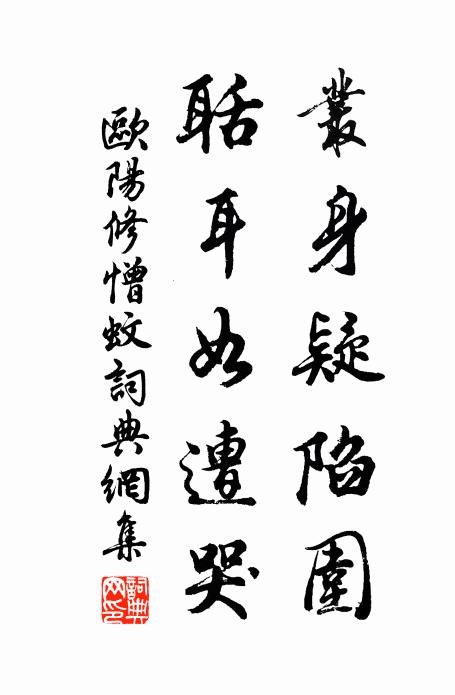 叢身疑陷圍
聒耳如遭哭
歐陽修憎蚊詞典網集
詞典網印